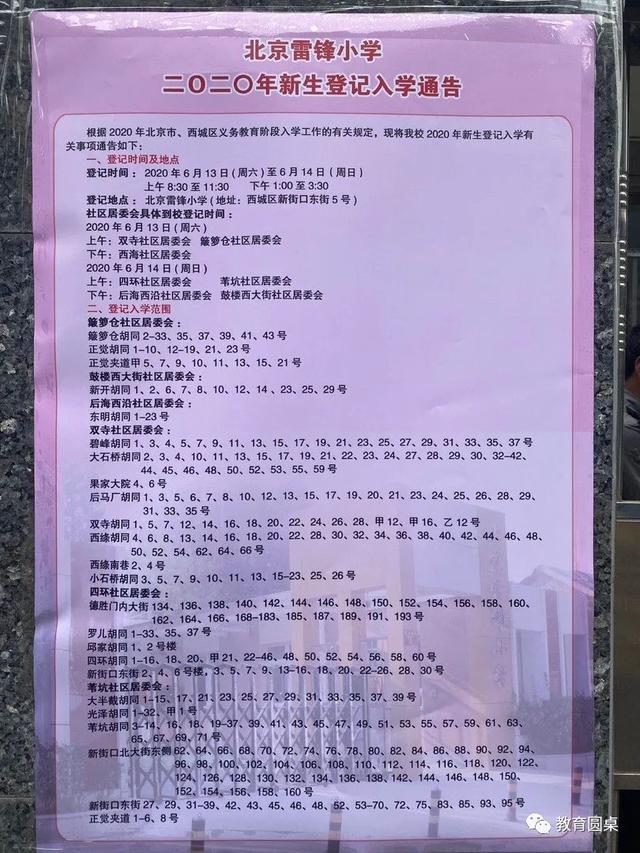 北京雷锋小学
二〇二〇年新生登记入学通告
根据2020年北京市、西城区义务教育阶段入学工作的有关规定，现将我校2020年新生登记入学有
关事项通告如下：
一、登记时间及地点
登记时间： 2020年6月13日(周六)至6月14日(周日)
上午8:30至11:30 下午1:00至3:30
登记地点：北京雷锋小学(地址：西城区新街口东街5号)
社区居委会具体到校登记时间：
2020年6月13日(周六)
上午：双寺社区居委会 簸箩仓社区居委会
下午：西海社区居委会
2020年6月14日(周日)
上午：四环社区居委会 苇坑社区居委会
下午：后海西沿社区居委会 鼓楼西大街社区居委会
二、登记入学范围
簸箩仓社区居委会：
簸箩仓胡同2-33、35、37、39、41、43号
正觉胡同1-10、12-19、21、23号
正觉夹道甲5、7、9、10、11、13、15、21号
鼓楼西大街社区居委会：
新开胡同1、2、6、7、8、10、12、14、23、25、29号
后海西沿社区居委会：
东明胡同1-23号
双寺社区居委会：
碧峰胡同1、3、4、5、7、9、11、13、15、17、19、21、23、25、27、29、31、33、35、37号
大石桥胡同2、3、4、10、11、13、15、17、19、21、22、23、24、27、28、29、30、32-42、
44、45、46、48、50、52、53、55、59号
果家大院4、6号
后马厂胡同1、3、5、6、7、8、10、12、13、15、17、19、20、21、23、24、25、26、28、29、
31、33、35号
双寺胡同1、5、7、12、14、16、18、20、22、24、26、28、甲12、甲16、乙12号
西绦胡同4、6、8、13、14、16、18、20、22、28、30、32、34、36、38、40、42、44、46、48、
50、52、54、62、64、66号
西绦南巷2、4号
小石桥胡同3、5、7、9、10、11、13、15-23、25、26号
四环社区居委会：
德胜门内大街134、136、138、140、142、144、146、148、150、152、154、156、158、160、
162、164、166、168-183、185、187、189、191、193号
罗儿胡同1-33、35、37号
邱家胡同1、2号楼
四环胡同1-16、18、20、甲21、22-46、48、50、52、54、56、58、60号
新街口东街2、4、6号楼，3、5、7、9、13-16、18、20、22-26、28、30号
苇坑社区居委会：
大半截胡同1-15、17、21、23、25、27、29、31、33、35、37、39号
光泽胡同1-32、甲1号
苇坑胡同3-14、16、18、19-37、39、41、43、45、47、49、51、53、55、57、59、61、63、
65、67、69、71号
新街口北大街东侧62、64、66、68、70、72、74、76、78、80、82、84、86、88、90、92、94、
96、98、100、102、104、106、108、110、112、114、116、118、120、122、
124、126、128、130、132、134、136、138、142、144、146、148、150、
152、154、156、158、160号
新街口东街27、29、31-39、42、43、45、46、48、52、53-70、72、75、83、85、93、95号
正觉夹道1-6、8号
教育圆桌